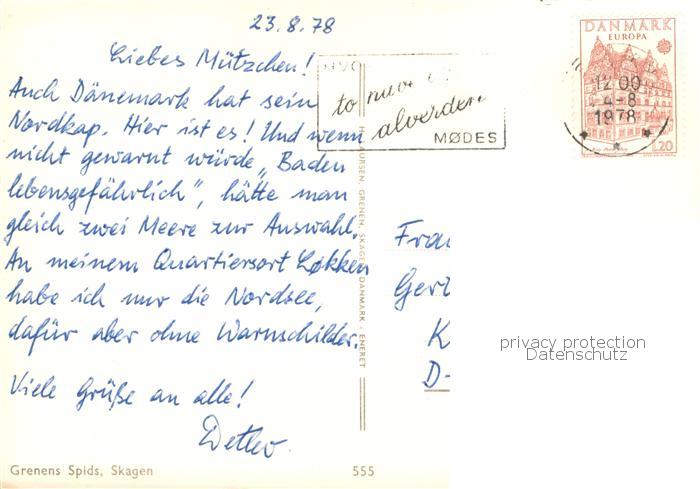 23.8.78
Liebes Mützchen!
Auch Dänemark hat sein
Nordkap. Hier ist es! Und wenn
nicht gewarnt würde „Baden
lebensgefährlich", hätte man
gleich zwei Meere zur Auswahl.
An meinem Quartiersort Løkken
habe ich nur die Nordsee,
dafür aber ohne Warnschilder.
Viele Grüße an alle!
Detlev.
Grenens Spids, Skagen
555
HVOR
to have
alverden
MØDES
GRENEN, SKAGEN, DANMARK · ENERET
DANMARK
EUROPA
12.00
4-8
1978
120
Frau
K
D-
privacy protection
Datenschutz